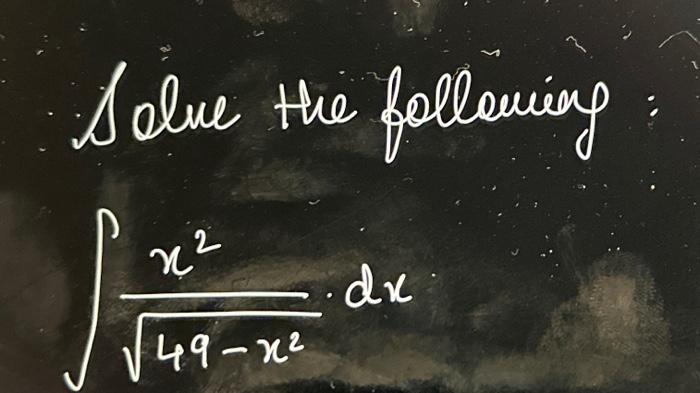 Solve the following :
∫ x² / √(49 - x²) · dx